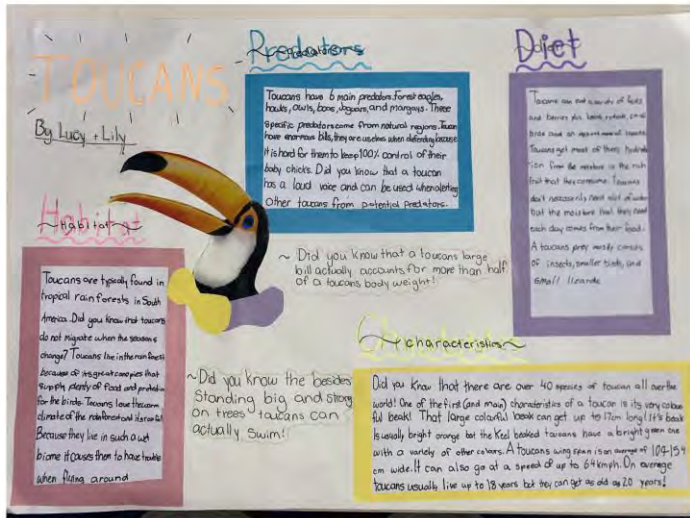 TOUCANS
By Lucy + Lily
Predators
Predators
Toucans have 6 main predators. Forest eagles,
hawks, owls, boas, Jaguars, and margays. These
specific predators come from natural regions. Toucan
have enormous bills, they are useless when defending because
it is hard for them to keep 100% control of their
baby chicks. Did you know that a toucan
has a loud voice and can be used when alerting
Other toucans from potential predators.
Diet
Toucans can eat a variety of fruits
and berries plus
birds and an assortment of insects.
Toucans get most of their hydrat
ion from the moisture in the rich
fruit that they consume. Toucans
don't necessarily need alot of water
but the moisture that they need
each day comes from their food.
A toucans prey mostly consists
of insects, smaller birds, and
small lizards.
Habitat
Habitat
Toucans are typically found in
tropical rain forests in South
America. Did you know that toucans
do not migrate when the seasons
change? Toucans live in the rain forest
because of its great canopies that
supply plenty of food and protection
for the birds. Toucans love the warm
climate of the rainforest and
Because they live in such a wet
biome it causes them to have trouble
when flying around
~ Did you know that a toucans large
bill actually accounts for more than half
of a toucans body weight!
~Did you know the besides
Standing big and strong
on trees toucans can
actually swim!
Characteristics
Did you know that there are over 40 species of toucan all over the
world! One of the first (and main) characteristics of a toucan is its very colour
ful beak! That large colorful beak can get up to 17cm long! It's beak
Is usually bright orange but the Keel beaked toucans have a bright green one
with a variety of other colours. A toucans wing span is an average of 109-154
cm wide. It can also go at a speed of up to 64kmph. On average
toucans usually live up to 18 years but they can get as old as 20 years!